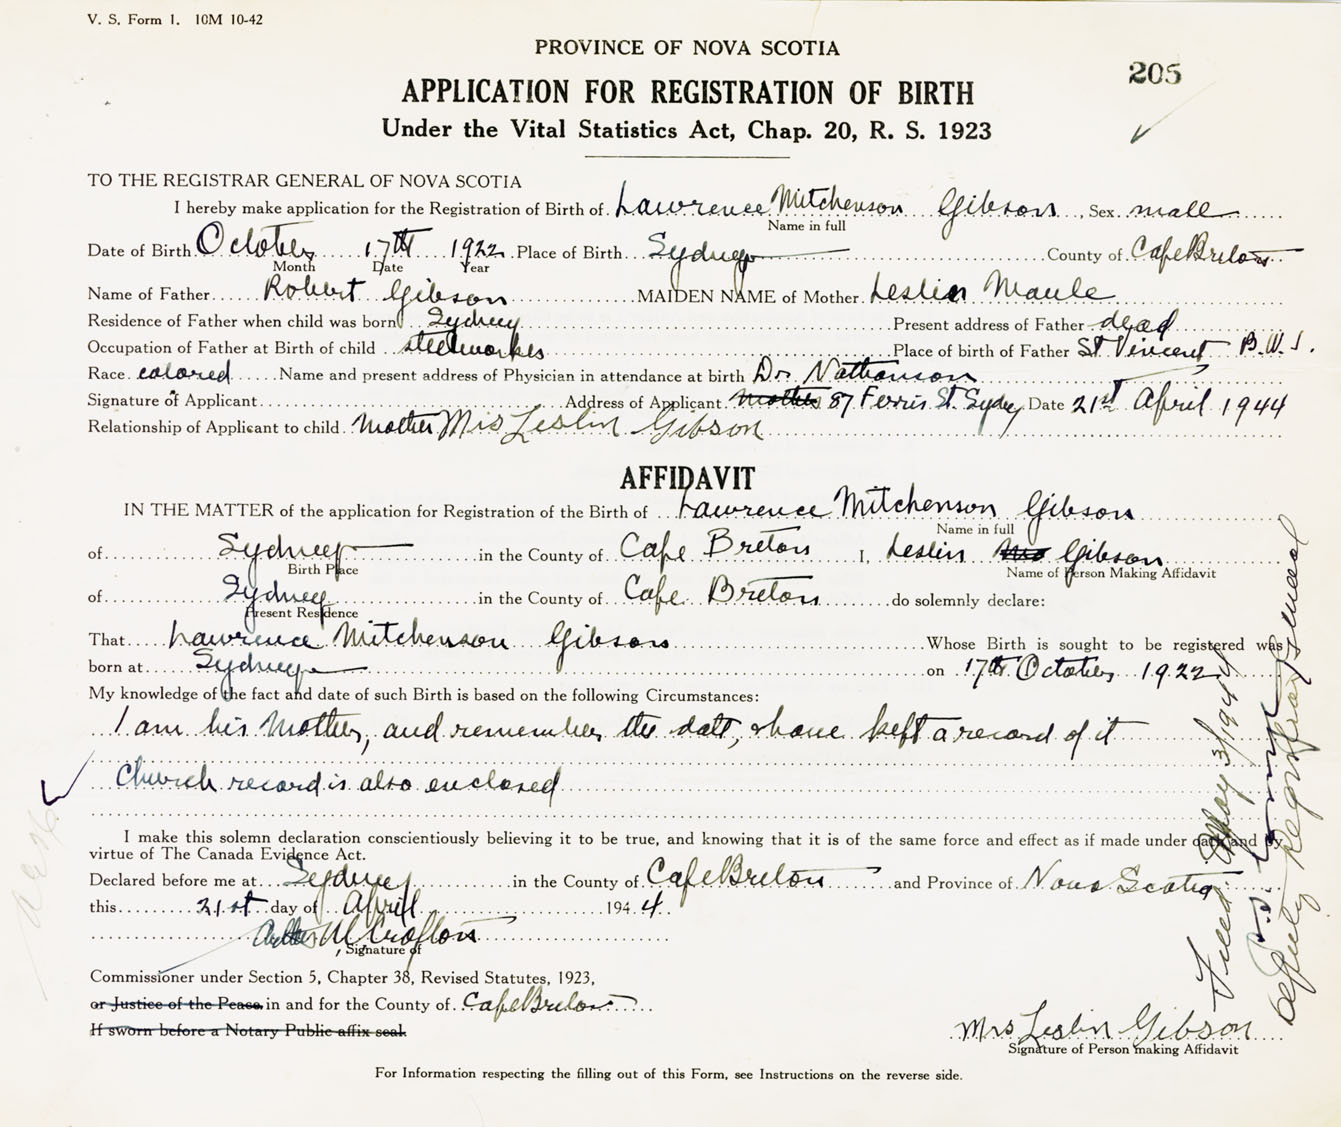 V. S. Form 1. 10M 10-42
PROVINCE OF NOVA SCOTIA
205
APPLICATION FOR REGISTRATION OF BIRTH
Under the Vital Statistics Act, Chap. 20, R. S. 1923
TO THE REGISTRAR GENERAL OF NOVA SCOTIA
I hereby make application for the Registration of Birth of Lawrence Mitchenson Gibson, Sex male
Name in full
Date of Birth October 17th 1922 Place of Birth Sydney County of Cape Breton
Month Date Year
Name of Father Robert Gibson MAIDEN NAME of Mother Leslin Maule
Residence of Father when child was born Sydney Present address of Father dead
Occupation of Father at Birth of child steelworker Place of birth of Father St Vincent B.W.I.
Race colored Name and present address of Physician in attendance at birth Dr Nathanson
Signature of Applicant Address of Applicant mother 87 Ferris St. Sydney Date 21st April 1944
Relationship of Applicant to child Mother Mrs Leslin Gibson
AFFIDAVIT
IN THE MATTER of the application for Registration of the Birth of Lawrence Mitchenson Gibson
Name in full
of Sydney in the County of Cape Breton I, Leslin Gibson
Birth Place Name of Person Making Affidavit
of Sydney in the County of Cape Breton do solemnly declare:
Present Residence
That Lawrence Mitchenson Gibson Whose Birth is sought to be registered was
born at Sydney on 17th October 1922
My knowledge of the fact and date of such Birth is based on the following Circumstances:
I am his Mother, and remember the date, & have kept a record of it
Church record is also enclosed
I make this solemn declaration conscientiously believing it to be true, and knowing that it is of the same force and effect as if made under oath and by
virtue of The Canada Evidence Act.
Declared before me at Sydney in the County of Cape Breton and Province of Nova Scotia
this 21st day of April 1944.
Signature of
Commissioner under Section 5, Chapter 38, Revised Statutes, 1923,
or Justice of the Peace in and for the County of Cape Breton
If sworn before a Notary Public affix seal.
Mrs Leslin Gibson
Signature of Person making Affidavit
For Information respecting the filling out of this Form, see Instructions on the reverse side.
Filed May 3/1944
Deputy Registrar General